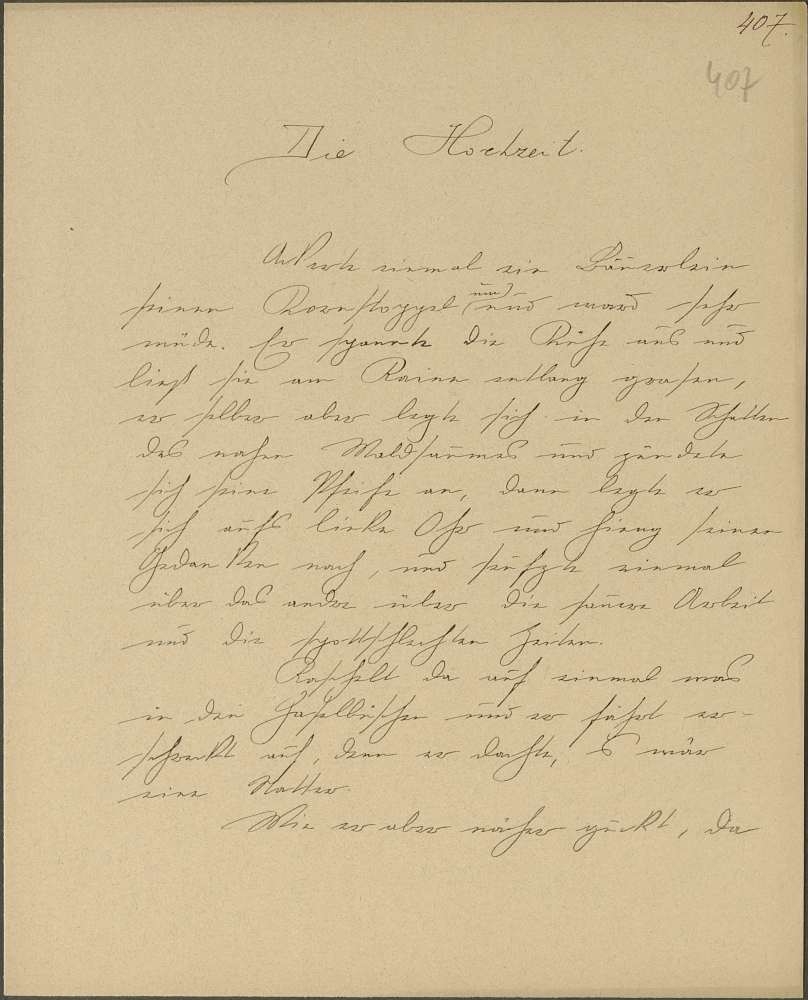 407.
407
Die Hochzeit.
Ackerte einmal ein Bäuerlein
seinen Kornstoppel um und ward sehr
müde. Er spannte die Kühe aus und
ließ sie am Raine entlang grasen,
er selber aber legte sich in den Schatten
des nahen Waldsaumes und zündete
sich seine Pfeife an, dann legte er
sich aufs linke Ohr und hieng seinen
Gedanken nach, und seufzte einmal
über das andre über die sauere Arbeit
und die spottschlechten Zeiten.
Raschelt da auf einmal was
in den Haselbüschen und er fährt er-
schreckt auf, denn er dachte, 's wär
eine Natter.
Wie er aber näher guckt, da